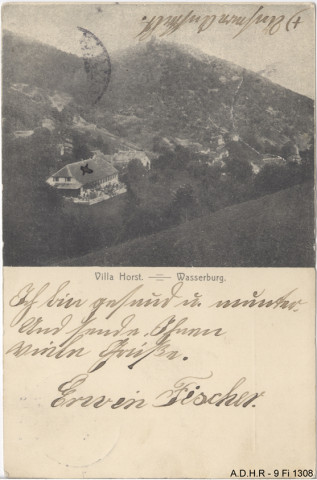 +) Unsere Anstalt.
Villa Horst. — Wasserburg.
Ich bin gesund u. munter.
Und sende Ihnen
viele Grüße.
Erwin Fischer.
A.D.H.R - 9 Fi 1308